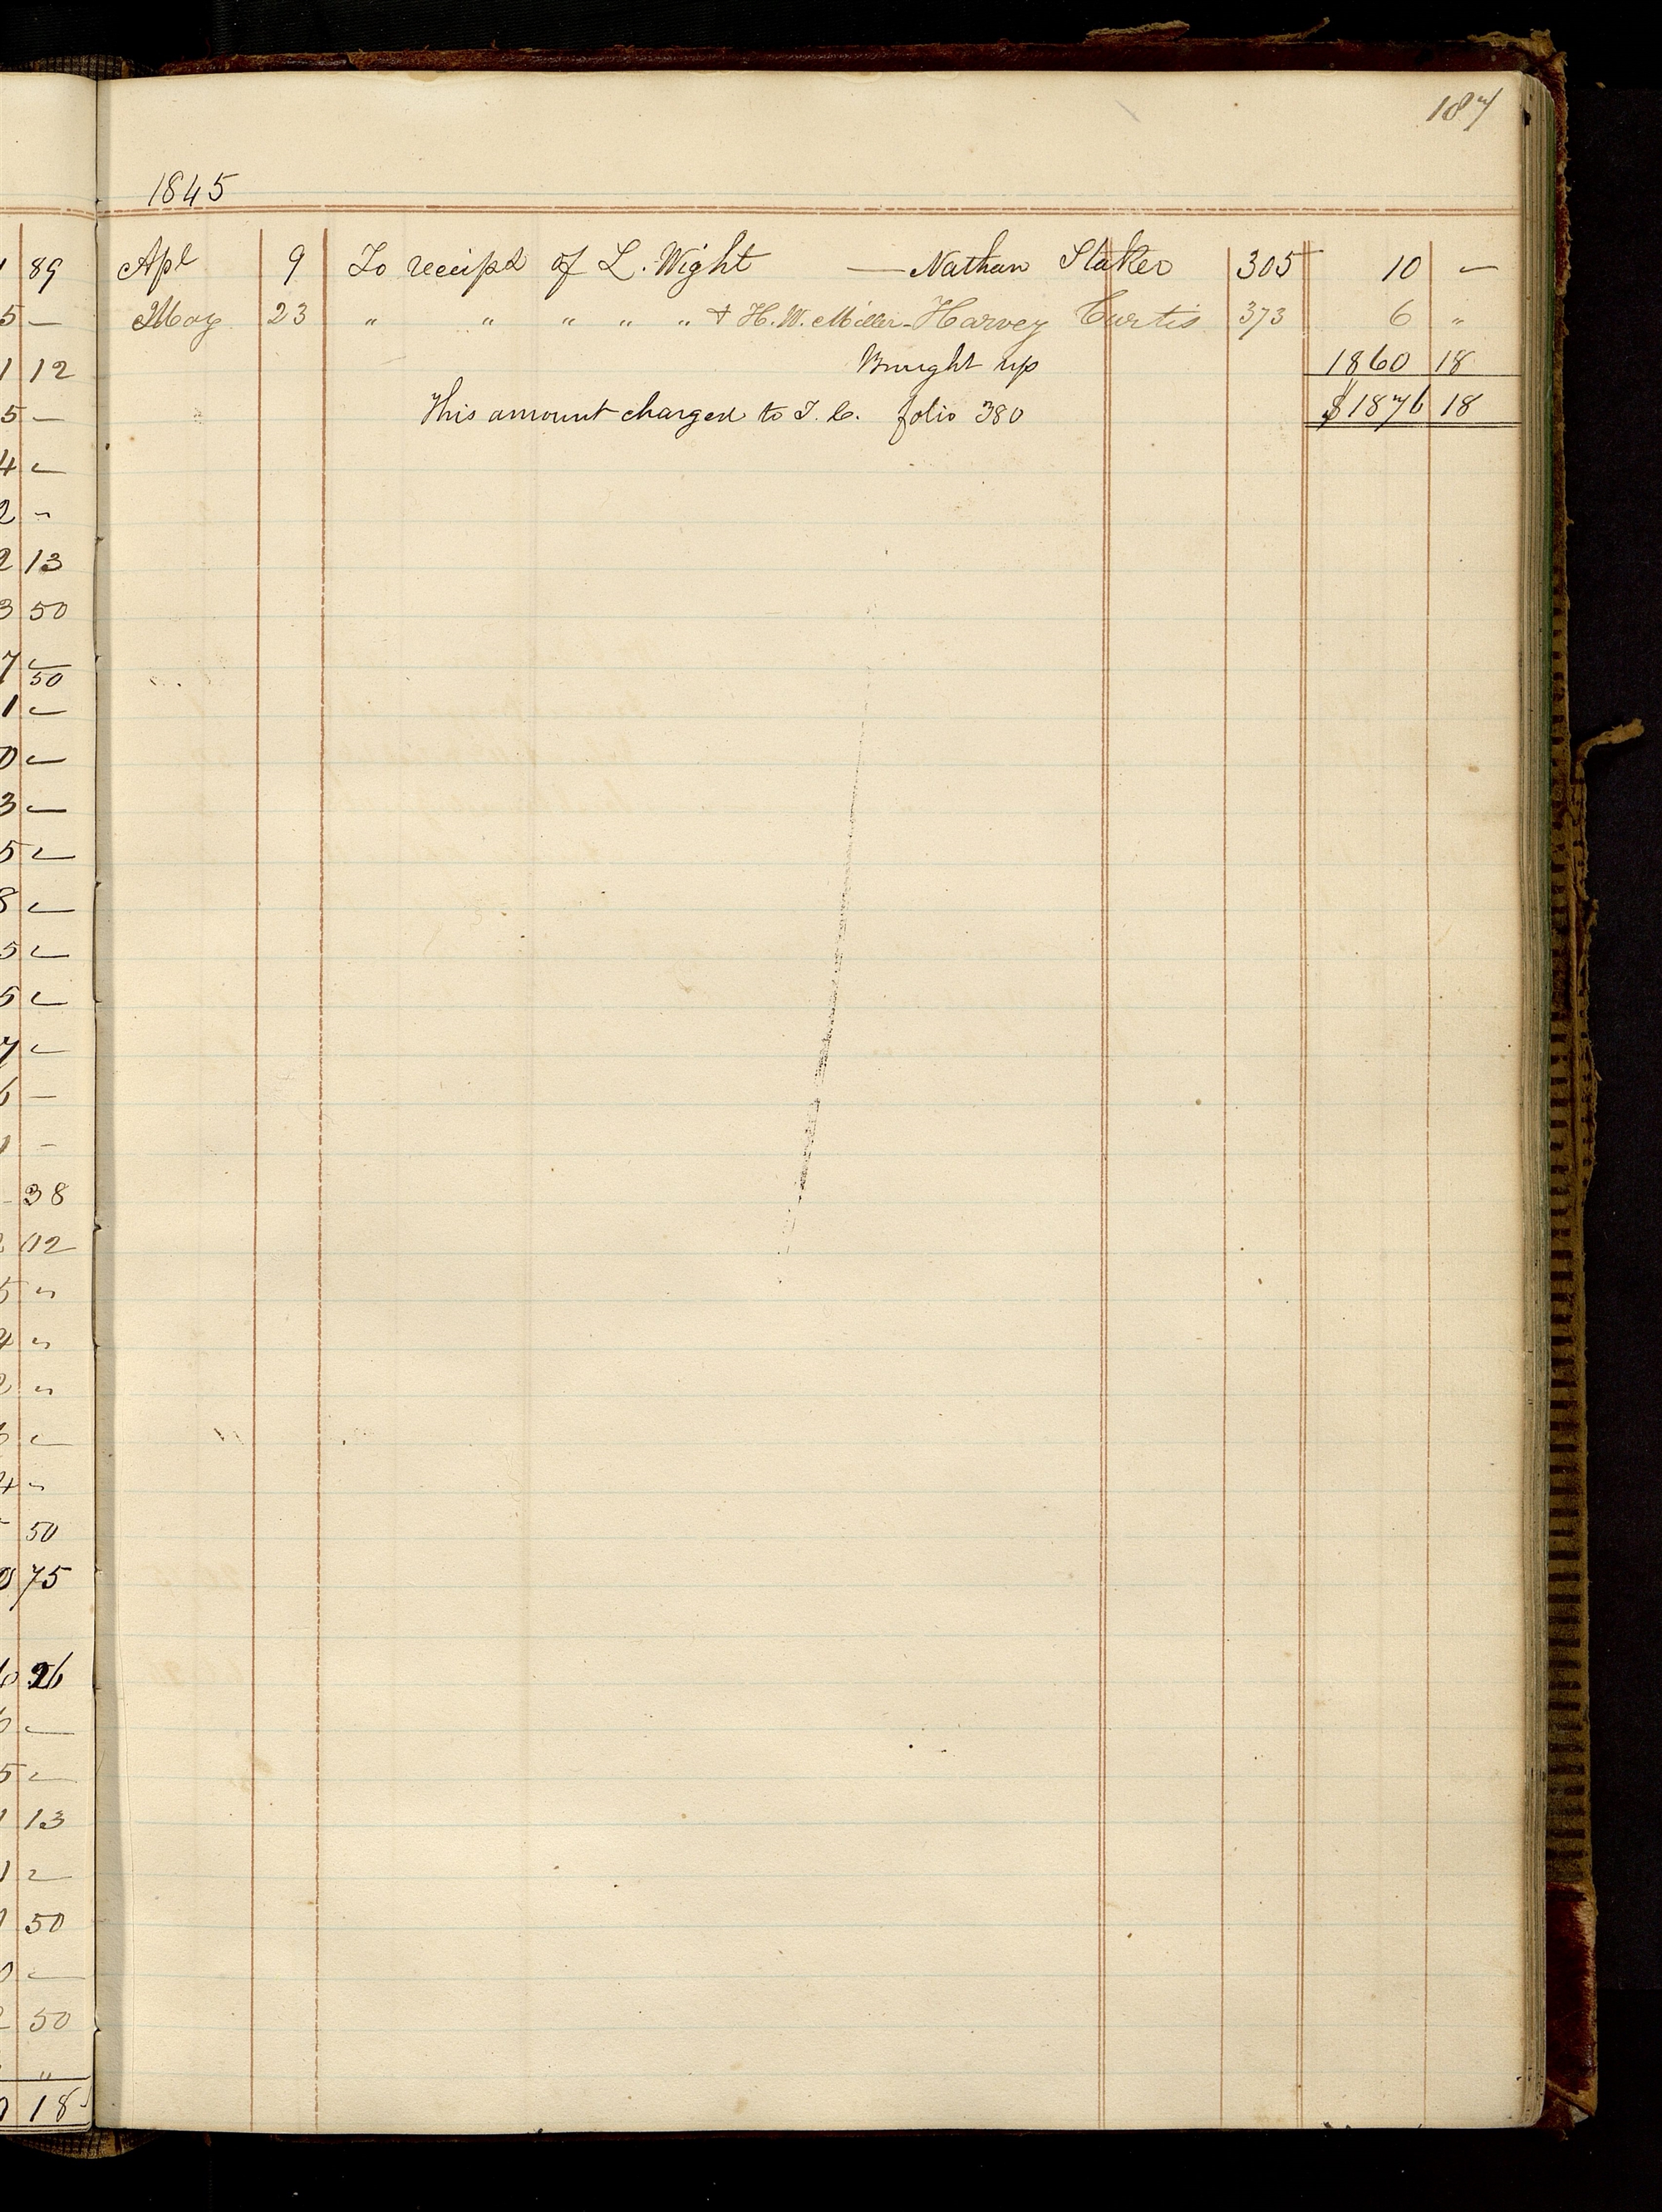 187
1845
Apl 9 To receipt of L. Wight — Nathan Staker 305 10 —
May 23 " " " " " & H. W. Miller - Harvey Curtis 373 6 "
Brought up 1860 18
This amount charged to T. C. folio 380 $1876 18
89
—
12
—
—
—
13
50
—
50
—
—
—
—
—
—
—
—
—
—
38
02
"
"
"
—
—
50
75
26
—
—
13
—
50
—
50
"
18